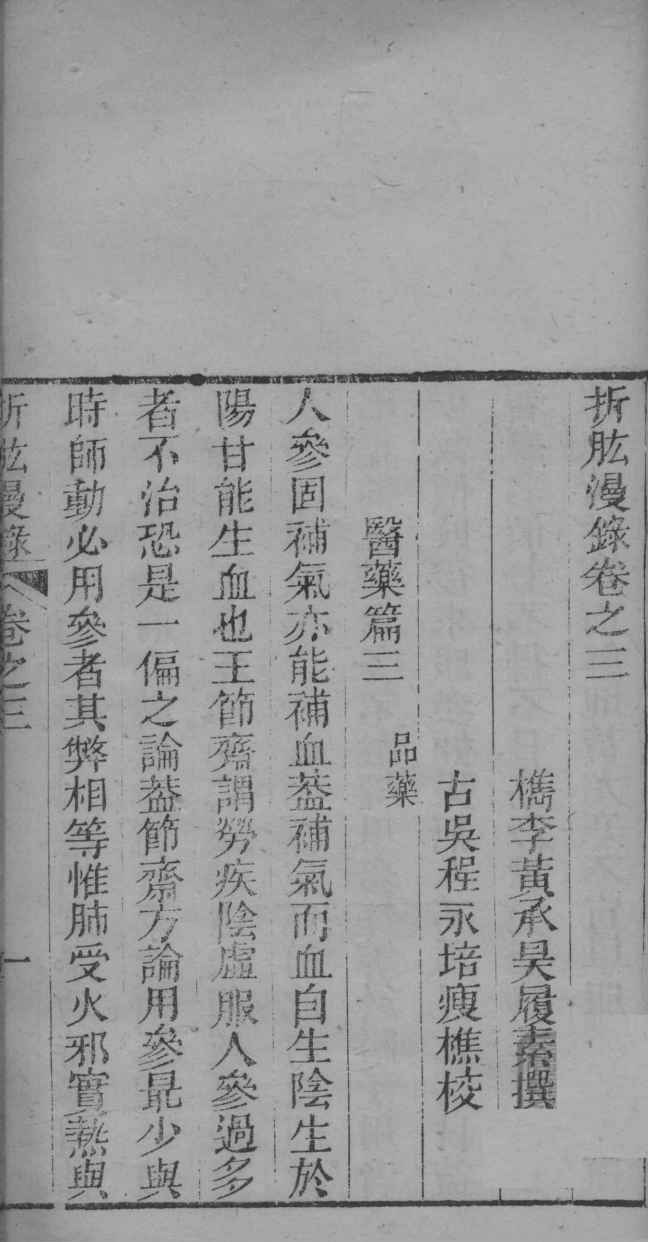 折肱漫錄卷之三
檇李黃承昊履素撰
古吳程永培瘦樵校
醫藥篇三 品藥
人參固補氣亦能補血葢補氣而血自生陰生於
陽甘能生血也王節齋謂勞疾陰虛服人參過多
者不治恐是一偏之論葢節齋方論用參最少與
時師動必用參者其弊相等惟肺受火邪實熱與
折肱漫錄 卷之三 一